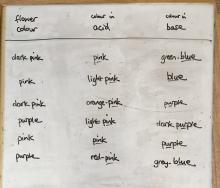 flower colour in colour in
colour acid base
dark pink pink green-blue
pink light pink blue
dark pink orange-pink purple
purple light pink dark purple
pink pink purple
purple red-pink grey-blue